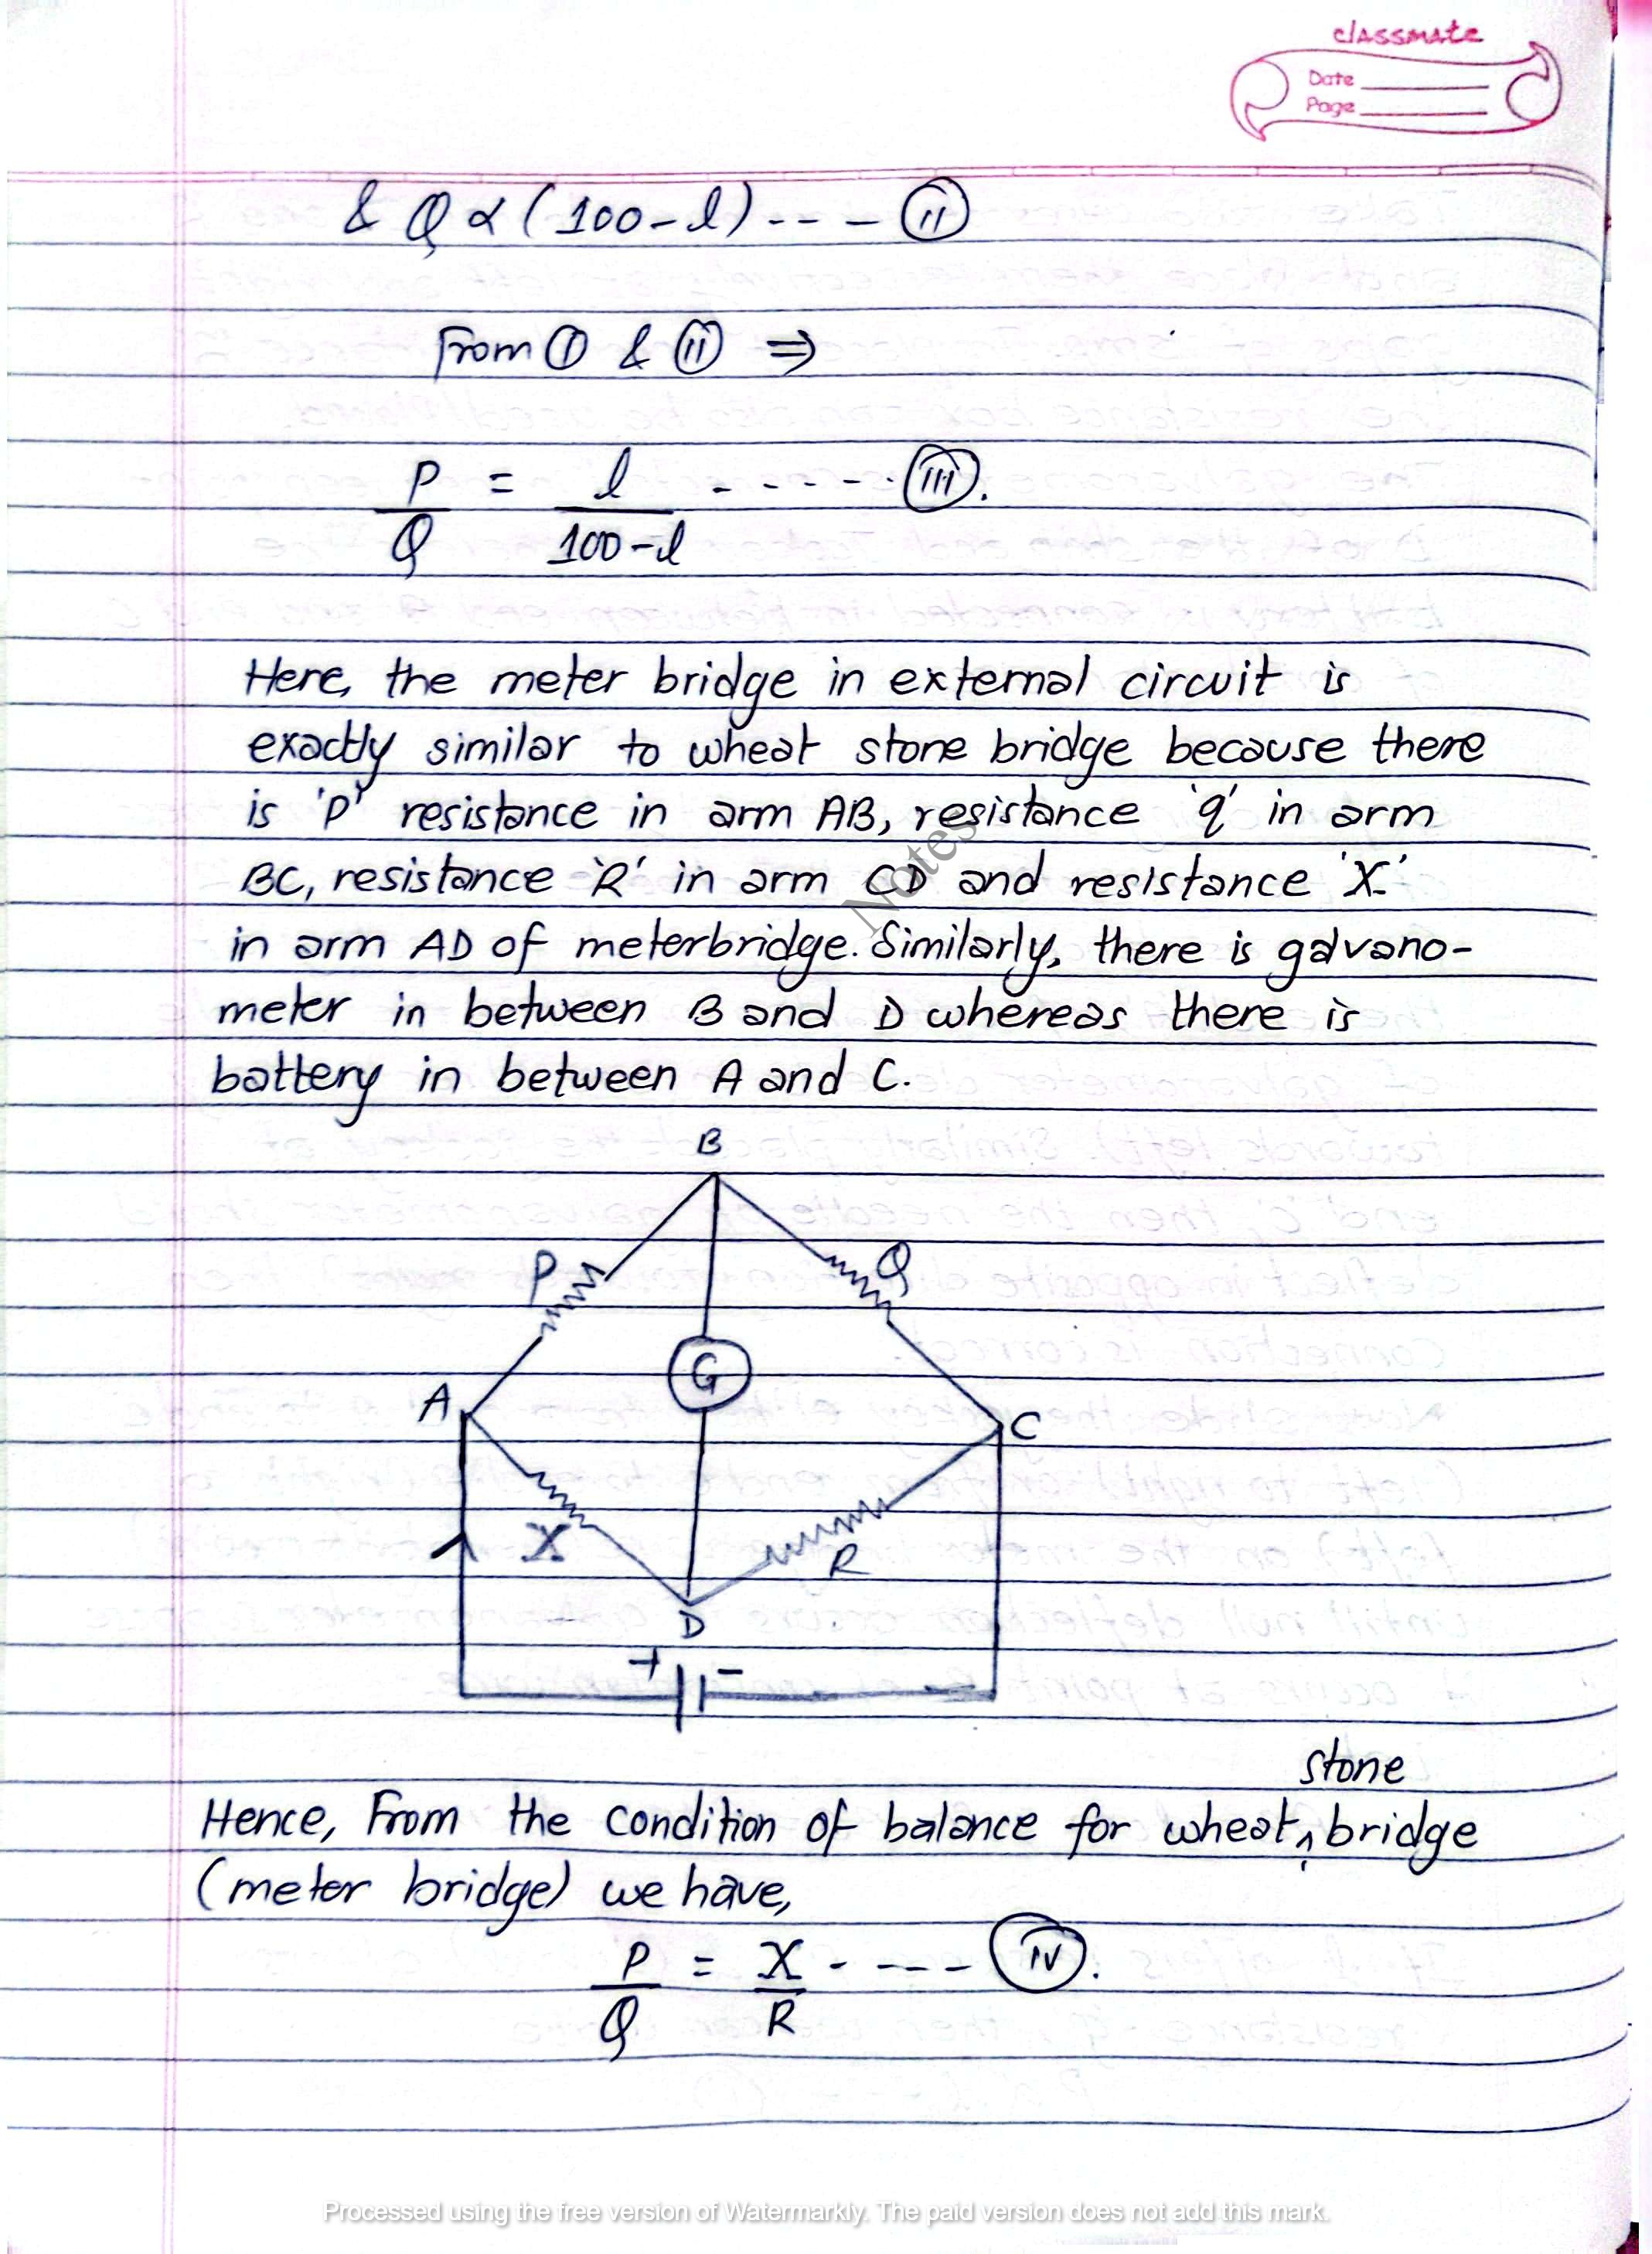 classmate
Date
Page
& Q ∝ (100-l) --- (ii)
From (i) & (ii) ⇒
P/Q = l/100-l ----- (iii).
Here, the meter bridge in external circuit is
exactly similar to wheat stone bridge because there
is 'P' resistance in arm AB, resistance 'q' in arm
BC, resistance 'R' in arm CD and resistance 'X'
in arm AD of meterbridge. Similarly, there is galvano-
meter in between B and D whereas there is
battery in between A and C.
Notes
B
P Q
G
A C
X R
D
+ -
stone
Hence, From the condition of balance for wheat ^ bridge
(meter bridge) we have,
P/Q = X/R ---- (iv).
Processed using the free version of Watermarkly. The paid version does not add this mark.